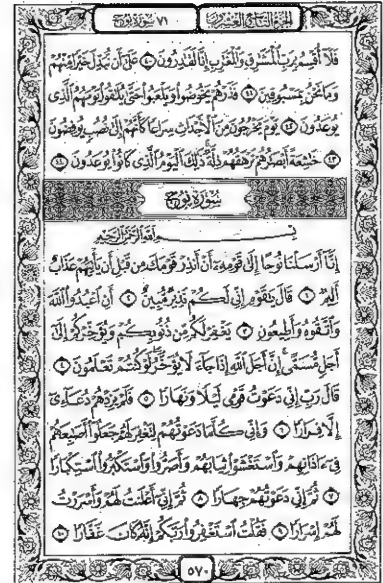 الجزء التاسع والعشرون ٧١ سورة نوح
فَلَآ أُقْسِمُ بِرَبِّ ٱلْمَشَٰرِقِ وَٱلْمَغَٰرِبِ إِنَّا لَقَٰدِرُونَ ٤٠ عَلَىٰٓ أَن نُّبَدِّلَ خَيْرًا مِّنْهُمْ
وَمَا نَحْنُ بِمَسْبُوقِينَ ٤١ فَذَرْهُمْ يَخُوضُوا۟ وَيَلْعَبُوا۟ حَتَّىٰ يُلَٰقُوا۟ يَوْمَهُمُ ٱلَّذِى
يُوعَدُونَ ٤٢ يَوْمَ يَخْرُجُونَ مِنَ ٱلْأَجْدَاثِ سِرَاعًا كَأَنَّهُمْ إِلَىٰ نُصُبٍ يُوفِضُونَ
٤٣ خَٰشِعَةً أَبْصَٰرُهُمْ تَرْهَقُهُمْ ذِلَّةٌ ذَٰلِكَ ٱلْيَوْمُ ٱلَّذِى كَانُوا۟ يُوعَدُونَ ٤٤
سُورَةُ نُوحٍ
بِسْمِ ٱللَّهِ ٱلرَّحْمَٰنِ ٱلرَّحِيمِ
إِنَّآ أَرْسَلْنَا نُوحًا إِلَىٰ قَوْمِهِۦٓ أَنْ أَنذِرْ قَوْمَكَ مِن قَبْلِ أَن يَأْتِيَهُمْ عَذَابٌ
أَلِيمٌ ١ قَالَ يَٰقَوْمِ إِنِّى لَكُمْ نَذِيرٌ مُّبِينٌ ٢ أَنِ ٱعْبُدُوا۟ ٱللَّهَ
وَٱتَّقُوهُ وَأَطِيعُونِ ٣ يَغْفِرْ لَكُم مِّن ذُنُوبِكُمْ وَيُؤَخِّرْكُمْ إِلَىٰٓ
أَجَلٍ مُّسَمًّى إِنَّ أَجَلَ ٱللَّهِ إِذَا جَآءَ لَا يُؤَخَّرُ لَوْ كُنتُمْ تَعْلَمُونَ ٤
قَالَ رَبِّ إِنِّى دَعَوْتُ قَوْمِى لَيْلًا وَنَهَارًا ٥ فَلَمْ يَزِدْهُمْ دُعَآءِىٓ
إِلَّا فِرَارًا ٦ وَإِنِّى كُلَّمَا دَعَوْتُهُمْ لِتَغْفِرَ لَهُمْ جَعَلُوٓا۟ أَصَٰبِعَهُمْ
فِىٓ ءَاذَانِهِمْ وَٱسْتَغْشَوْا۟ ثِيَابَهُمْ وَأَصَرُّوا۟ وَٱسْتَكْبَرُوا۟ ٱسْتِكْبَارًا
٧ ثُمَّ إِنِّى دَعَوْتُهُمْ جِهَارًا ٨ ثُمَّ إِنِّىٓ أَعْلَنتُ لَهُمْ وَأَسْرَرْتُ
لَهُمْ إِسْرَارًا ٩ فَقُلْتُ ٱسْتَغْفِرُوا۟ رَبَّكُمْ إِنَّهُۥ كَانَ غَفَّارًا ١٠
٥٧٠